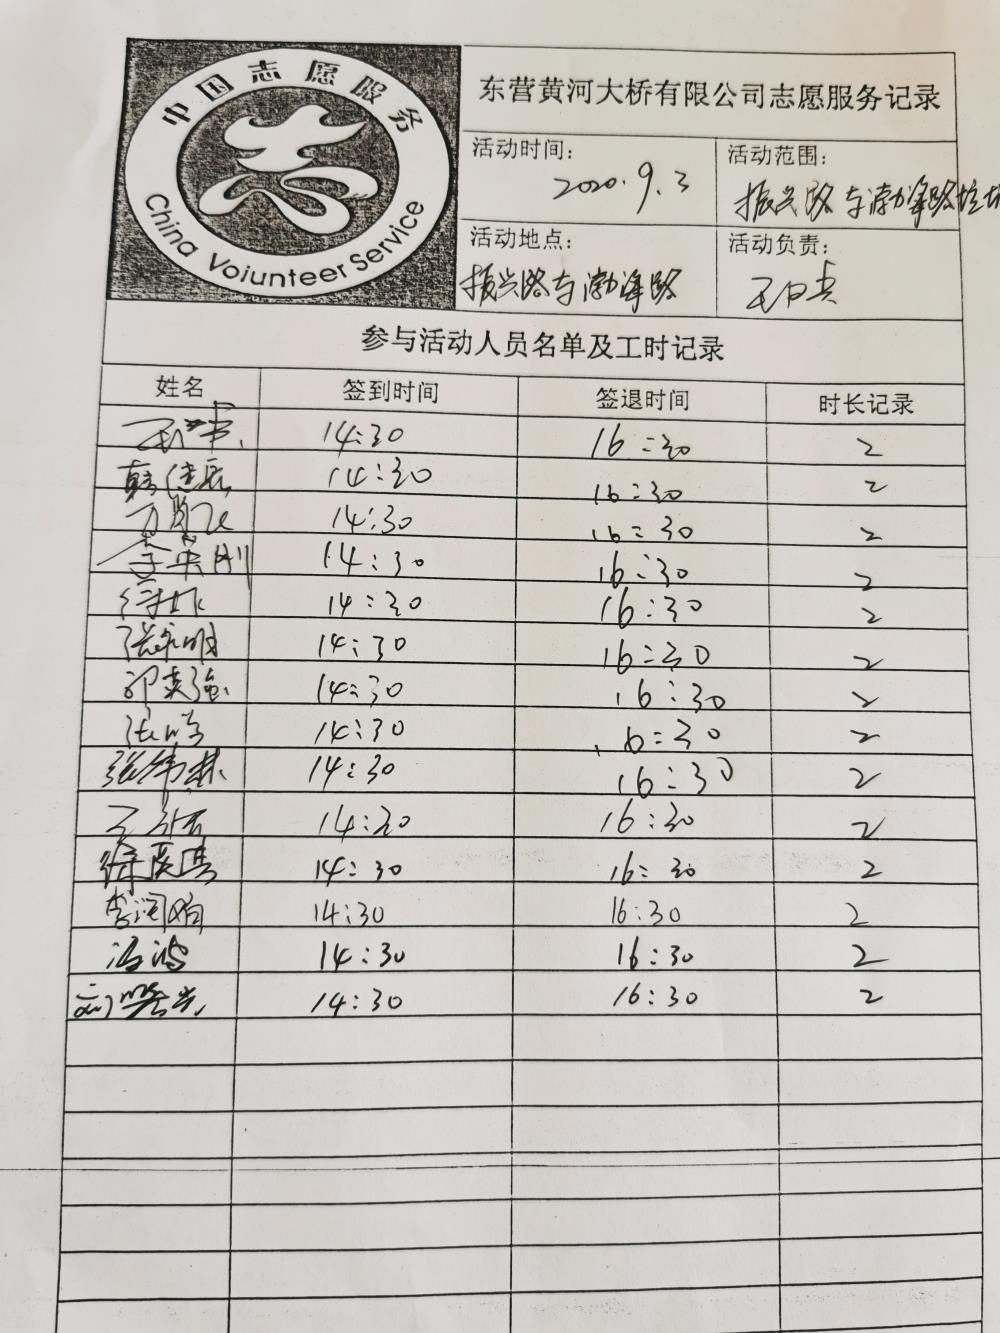 中国志愿服务
China Voiunteer Service
东营黄河大桥有限公司志愿服务记录
活动时间：
2020.9.3
活动范围：
振兴路与渤海路
活动地点：
振兴路与渤海路
活动负责：
参与活动人员名单及工时记录
姓名 签到时间 签退时间 时长记录
14:30 16:30 2
韩建辰 14:30 16:30 2
14:30 16:30 2
14:30 16:30 2
14:30 16:30 2
张永明 14:30 16:30 2
邵英强 14:30 16:30 2
14:30 16:30 2
张伟林 14:30 16:30 2
14:30 16:30 2
14:30 16:30 2
14:30 16:30 2
冯波 14:30 16:30 2
14:30 16:30 2